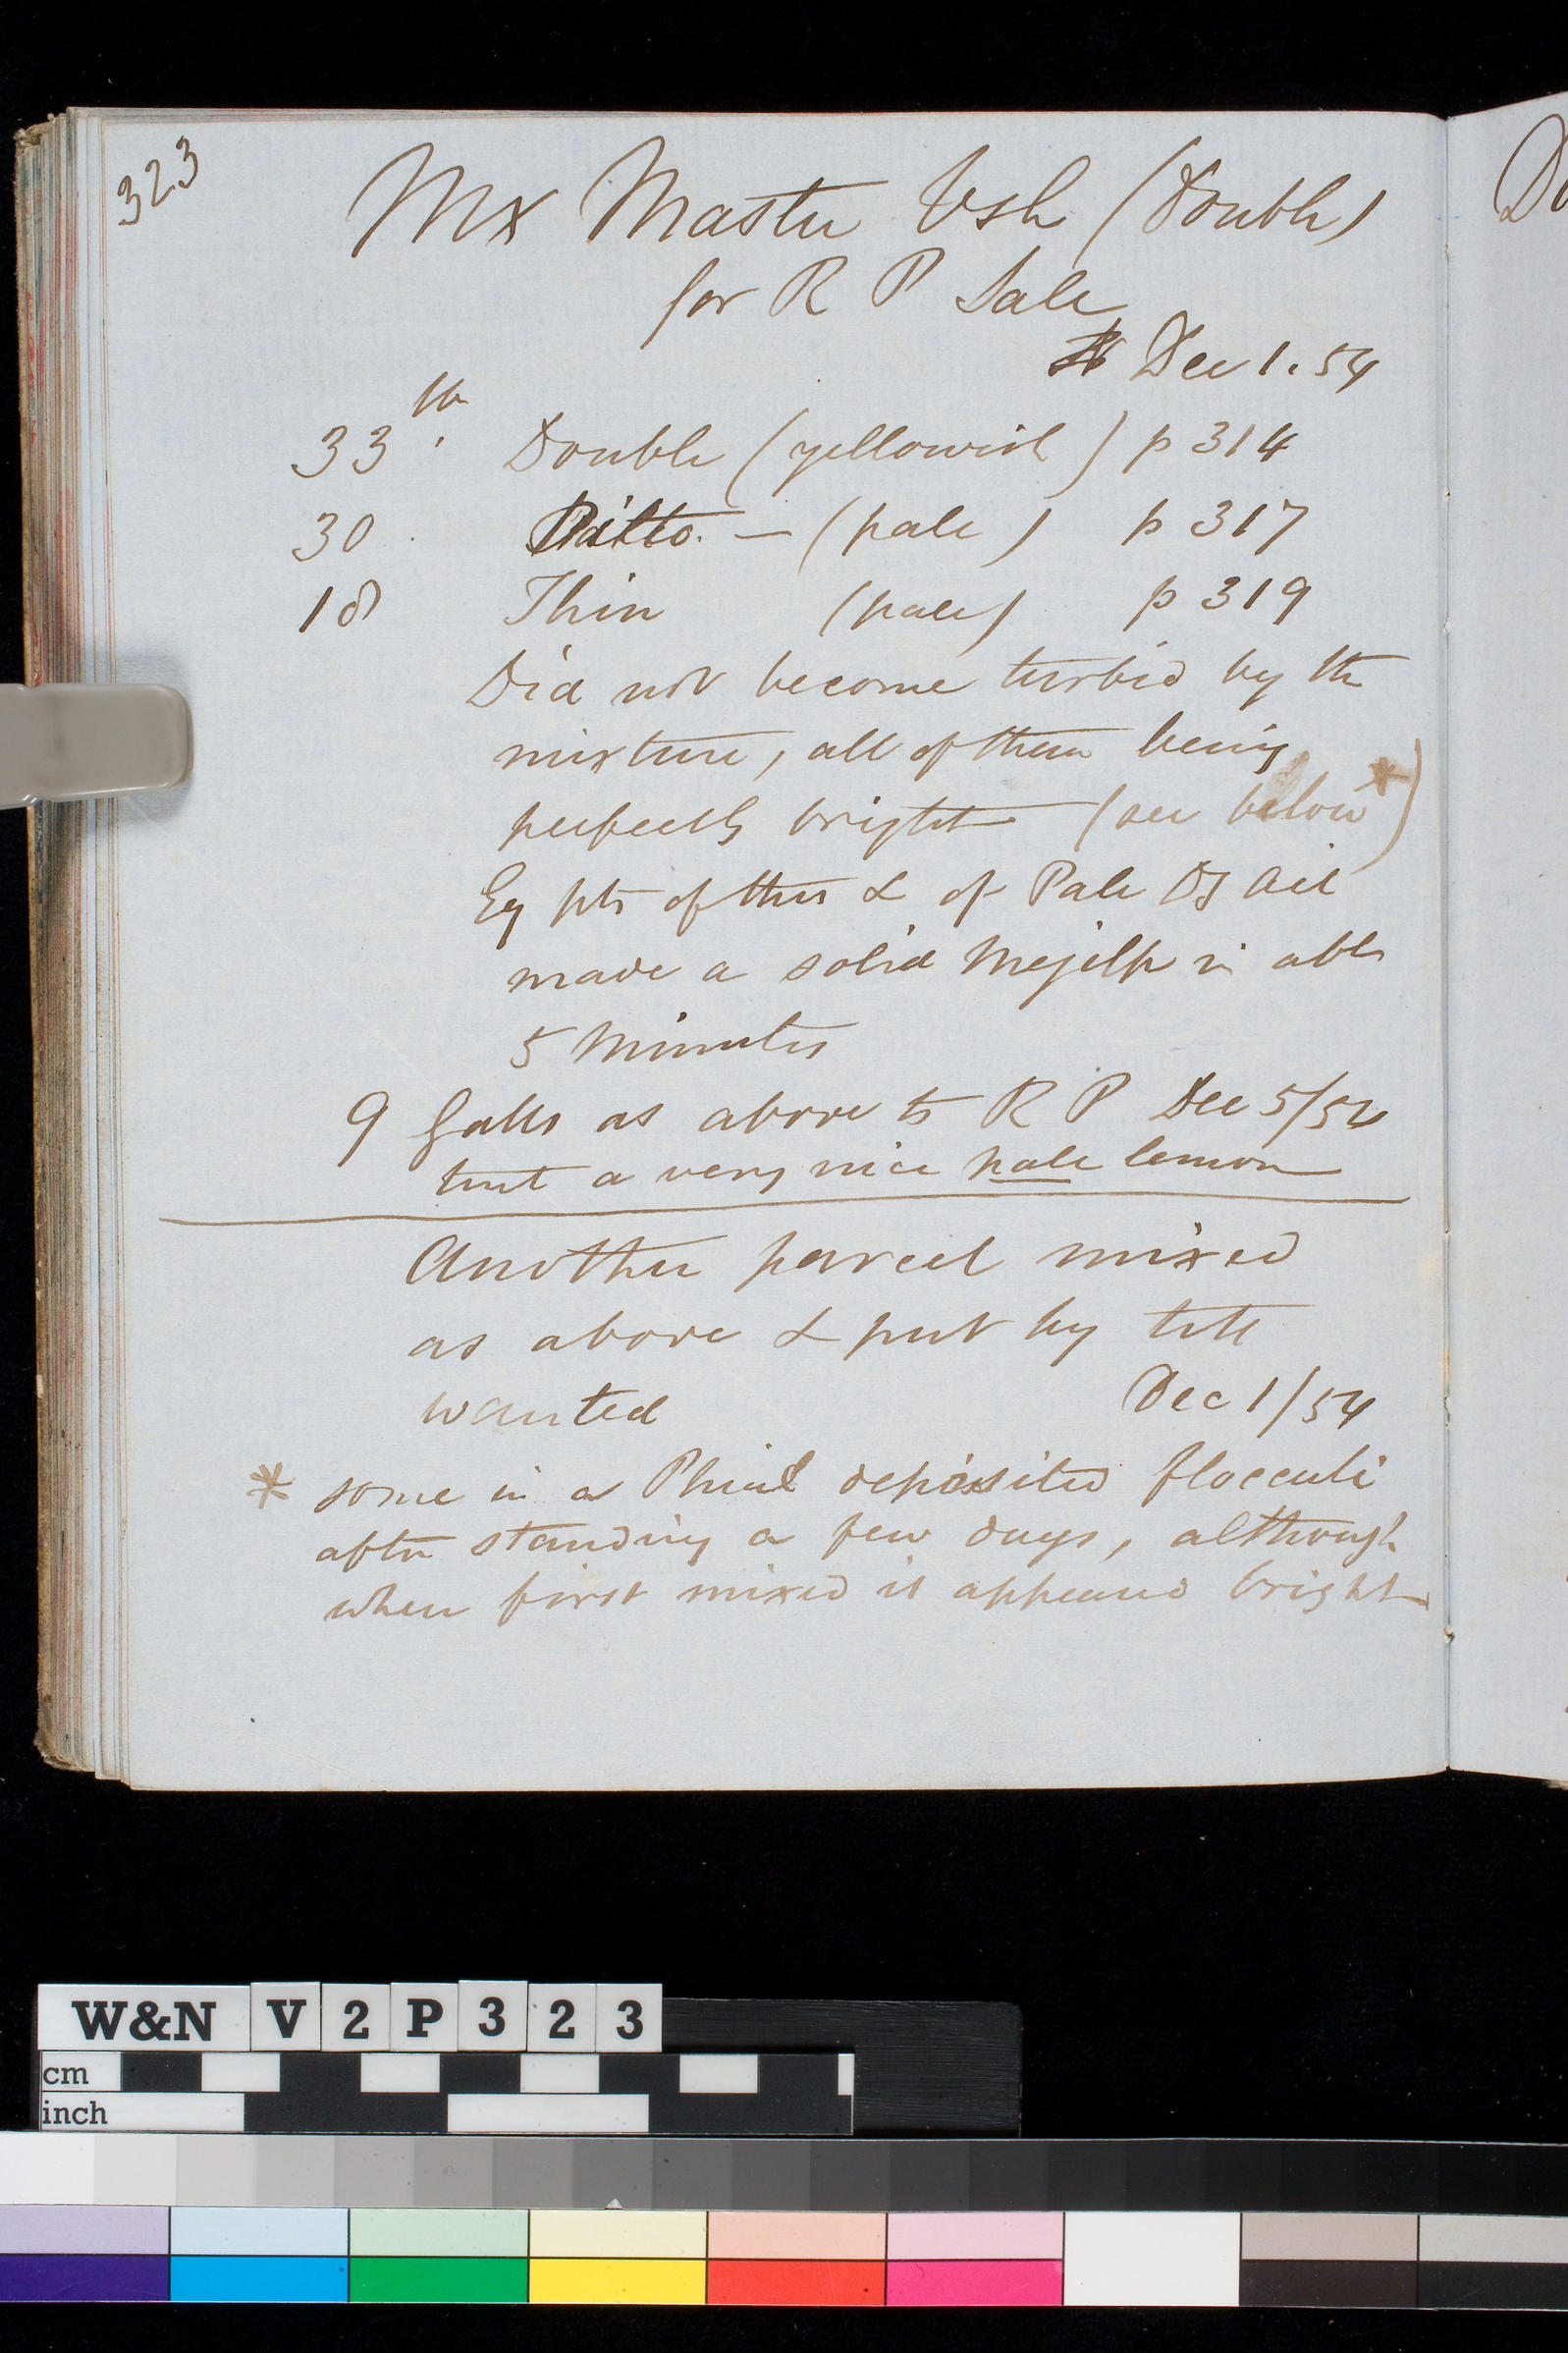 323
Mx Mastic Vsh (Double)
for R P Sale
Dec 1. 54
lb
33 . Double (yellowish) p 314
30 . Ditto. — (pale) p 317
18 Thin (pale) p 319
Did not become turbid by the
mixture, all of them being
perfectly bright (see below *)
Eq pts of this & of Pale Dg Oil
made a solid Megilp in abt
5 Minutes
9 Galls as above to R P Dec 5/54
tint a very nice pale lemon
Another parcel mixed
as above & put by till
wanted Dec 1/54
* some in a Phial deposited flocculi
after standing a few days, although
when first mixed it appeared bright
Do
W&N V2P323
cm
inch